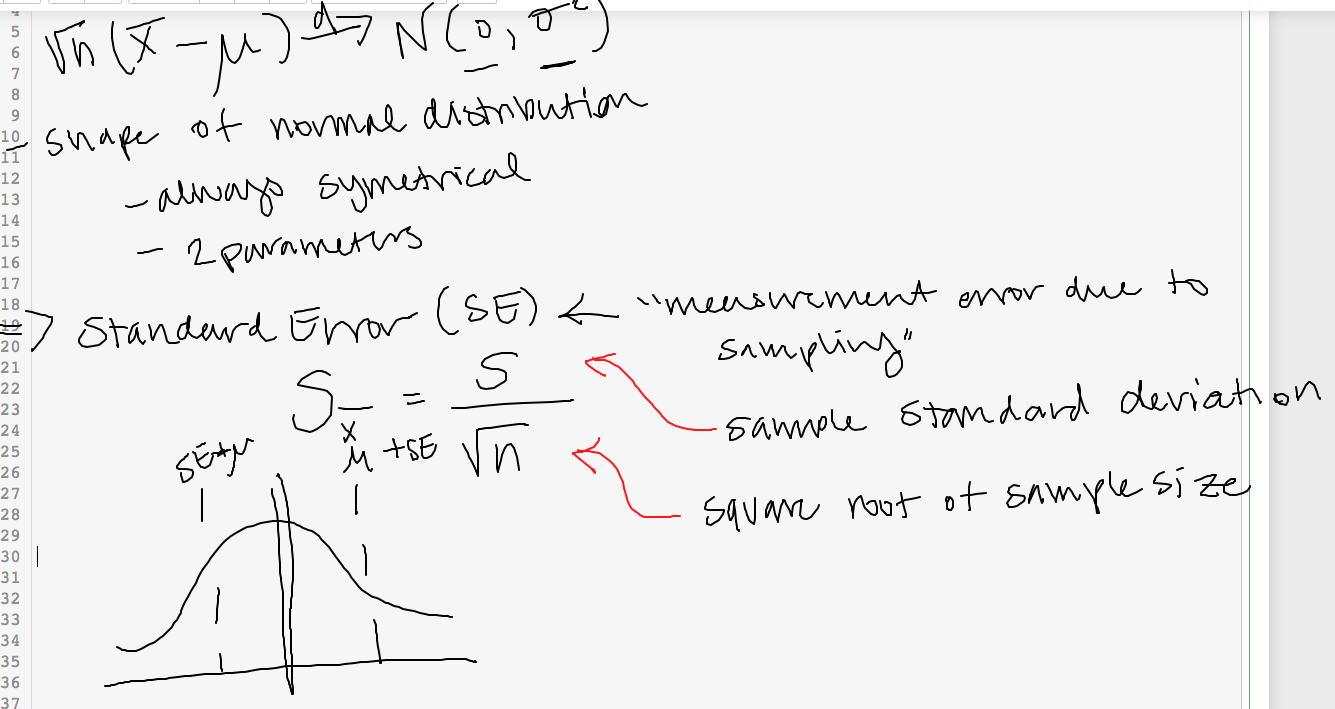 4
5
6
7
8
9
10
11
12
13
14
15
16
17
18
19
20
21
22
23
24
25
26
27
28
29
30
31
32
33
34
35
36
37
√n (x̄ - μ) d→ N(0, σ²)
- shape of normal distribution
- always symetrical
- 2 parameters
=> Standard Error (SE) ← "measurement error due to
sampling"
S_x̄ = S / √n
sample standard deviation
square root of sample size
SE+μ
μ +SE